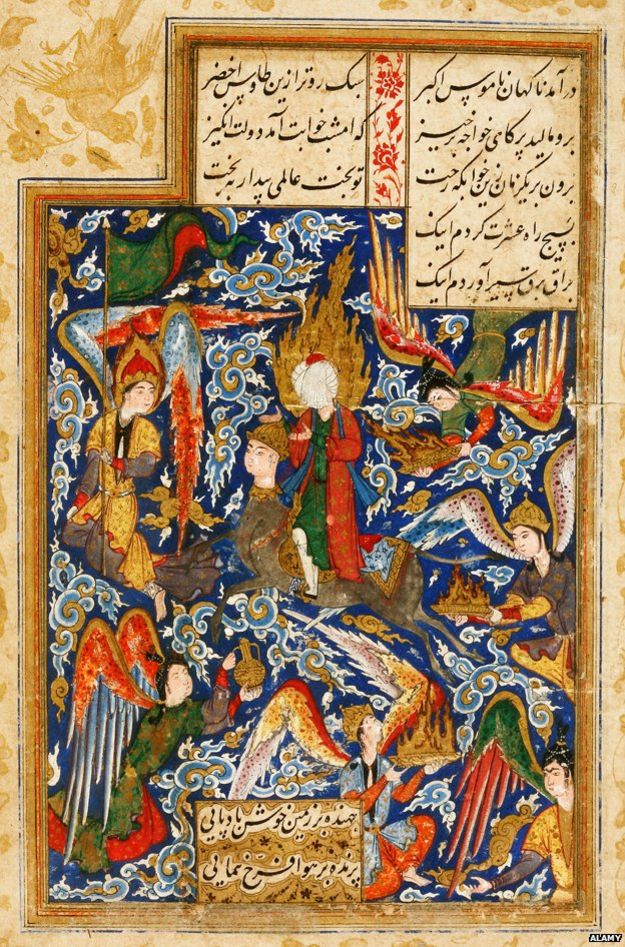 درآمد ناگهان ناموس اکبر سبک رو تر ازین طاوس اخضر
برو مالید پر کای خواجه برخیز که امشب خوابت آمد دولت انگیز
برون بر یکزمان زین خوابگه رخت تو بخت عالمی بیدار به بخت
بسیج راه عشرت کردم اینک
براق برق سیر آوردم اینک
جهنده بر زمین خوش بادپایی
پرنده بر هوا فرخ نمایی
ALAMY